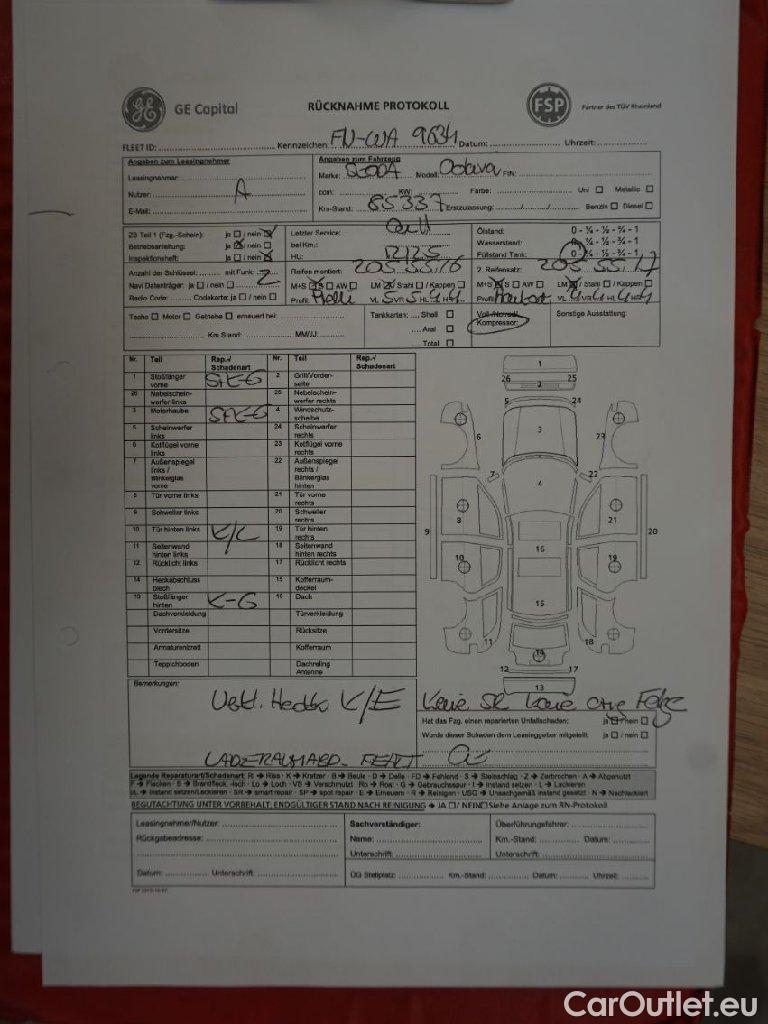 GE Capital
RÜCKNAHME PROTOKOLL
FSP
Partner des TÜV Rheinland
FLEET ID: Kennzeichen: Datum: Uhrzeit:
Angaben zum Leasingnehmer
Angaben zum Fahrzeug
Leasingnehmer:
Marke: SCODA Modell: Octavia FIN:
Nutzer: A
ccm: KW: Farbe: Uni ☐ Metallic ☐
E-Mail:
Km-Stand: 85337 Erstzulassung: / / Benzin ☐ Diesel ☐
ZB Teil 1 (Fzg.-Schein): ja ☐ / nein ☒
Letzter Service:
Ölstand: 0 - ¼ - ½ - ¾ - 1
Betriebsanleitung: ja ☒ / nein ☐
bei Km.:
Wasserstand: 0 - ¼ - ½ - ¾ - 1
Inspektionsheft: ja ☐ / nein ☒
HU:
Füllstand Tank: 0 - ¼ - ½ - ¾ - 1
Anzahl der Schlüssel: mit Funk: 2
Reifen montiert: 205 55 16
2. Reifensatz: 205 55 17
Navi Datenträger: ja ☐ / nein ☐
M+S ☐ S ☐ AW ☐ LM ☒ / Stahl ☐ / Kappen ☐
M+S ☒ S ☐ AW ☐ LM ☒ / Stahl ☐ / Kappen ☐
Radio Code: Codekarte: ja ☐ / nein ☐
Profil: VL 5 VR 5 HL 4 HR 4
Profil: VL 4 VR 4 HL 4 HR 4
Tacho ☐ Motor ☐ Getriebe ☐ erneuert bei:
Km Stand: MM/JJ:
Tankkarten: Shell ☐
Aral ☐
Total ☐
Voll-/Notrad/
Kompressor:
Sonstige Ausstattung:
Nr. Teil Rep./ Schadenart Nr. Teil Rep./ Schadenart
1 Stoßfänger vorne 2 Grill/Vorderseite
26 Nebelscheinwerfer links 25 Nebelscheinwerfer rechts
3 Motorhaube 4 Windschutzscheibe
5 Scheinwerfer links 24 Scheinwerfer rechts
6 Kotflügel vorne links 23 Kotflügel vorne rechts
7 Außenspiegel links / Blinkerglas vorne 22 Außenspiegel rechts / Blinkerglas hinten
8 Tür vorne links 21 Tür vorne rechts
9 Schweller links 20 Schweller rechts
10 Tür hinten links K/L 19 Tür hinten rechts
11 Seitenwand hinten links 18 Seitenwand hinten rechts
12 Rücklicht links 17 Rücklicht rechts
14 Heckabschluss blech 15 Kofferraumdeckel
13 Stoßfänger hinten K-G 16 Dach
Dachverkleidung Türverkleidung
Vordersitze Rücksitze
Armaturenbrett Kofferraum
Teppichboden Dachreling Antenne
1
26 2 25
5 24
6 3 23
7 4 22
9 8 21 20
10 16 19
15
11 14 18
12 17
13
Bemerkungen:
K/E
Hat das Fzg. einen reparierten Unfallschaden: ja ☐ / nein ☐
Wurde dieser Schaden dem Leasinggeber mitgeteilt ja ☐ / nein ☐
LADERAUMABD. FEHLT
Legende Reparaturart/Schadenart: R → Riss · K → Kratzer · B → Beule · D → Delle · FD → Fehlend · S → Steinschlag · Z → Zerbrochen · A → Abgenutzt
F → Flecken · B → Brandfleck, -loch · Lo → Loch · VS → Verschmutzt · Ro → Rost · G → Gebrauchsspur · I → Instand setzen · L → Lackieren
I/L → Instand setzen/Lackieren · SR → smart repair · SP → spot repair · E → Erneuern · R → Reinigen · USG → Unsachgemäß instand gesetzt · N → Nachlackiert
BEGUTACHTUNG UNTER VORBEHALT, ENDGÜLTIGER STAND NACH REINIGUNG → JA ☐ / NEIN ☐ Siehe Anlage zum RN-Protokoll
Leasingnehmer/Nutzer: Sachverständiger: Überführungsfahrer:
Rückgabeadresse: Name: Km.-Stand: Datum:
Unterschrift: Unterschrift:
Datum: Unterschrift: ÜG Stellplatz: Km.-Stand: Datum: Uhrzeit:
CarOutlet.eu